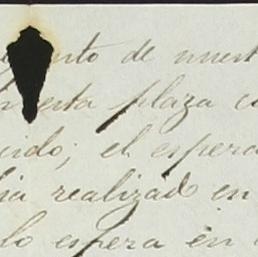 nto de nuest
esta plaza c
cido; el espera
ia realizad en
lo espera en